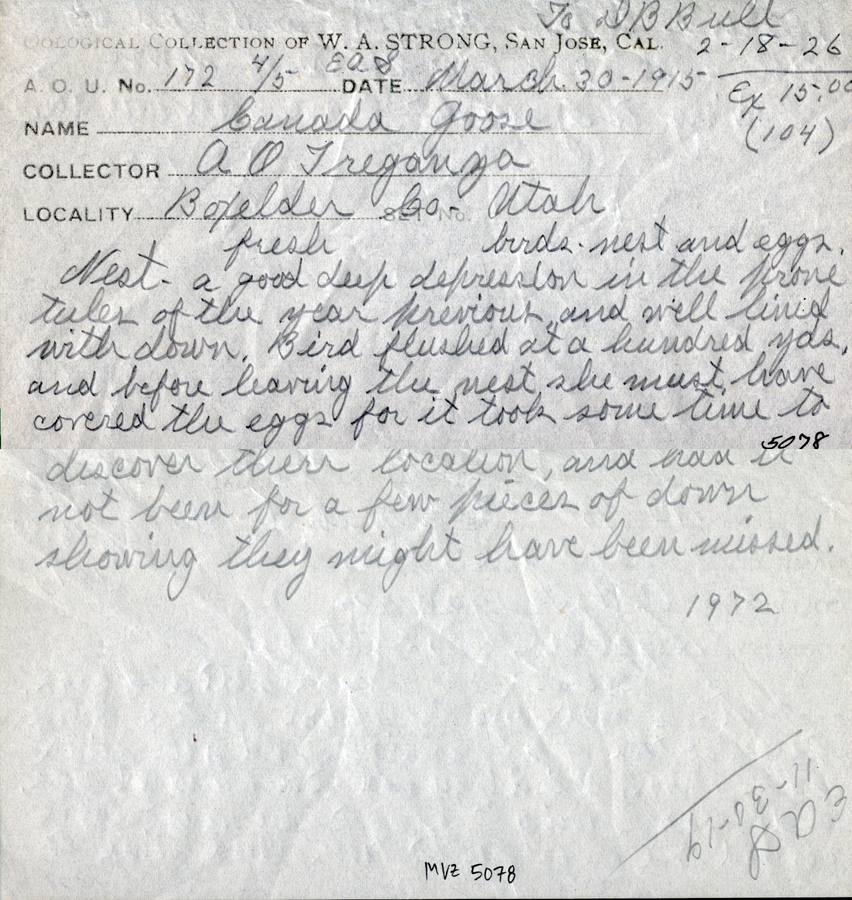 To D B Bull
OOLOGICAL COLLECTION OF W. A. STRONG, SAN JOSE, CAL.
2-18-26
A. O. U. No. 172 4/5 EAS DATE March 30-1915
Ex 15.00
(104)
NAME Canada Goose
COLLECTOR A O Treganza
LOCALITY Boxelder Co- SET No. Utah
fresh birds. nest and eggs.
Nest- a good deep depression in the prone
tules of the year previous, and well lined
with down. Bird flushed at a hundred yds,
and before leaving the nest she must have
covered the eggs for it took some time to
5078
discover there location, and had it
not been for a few pieces of down
showing they might have been missed.
1972
11-30-19
E A S
MVZ 5078